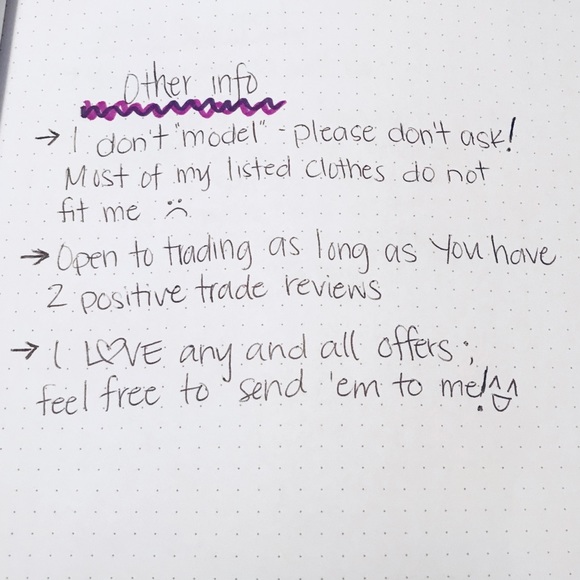 Other info
→ I don't "model" - please don't ask!
Most of my listed clothes do not
fit me :(
→ Open to trading as long as you have
2 positive trade reviews
→ I L♡VE any and all offers;
feel free to send 'em to me! ^^